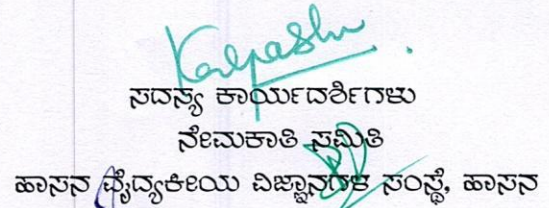 ಸದಸ್ಯ ಕಾರ್ಯದರ್ಶಿಗಳು
ನೇಮಕಾತಿ ಸಮಿತಿ
ಹಾಸನ ವೈದ್ಯಕೀಯ ವಿಜ್ಞಾನಗಳ ಸಂಸ್ಥೆ, ಹಾಸನ